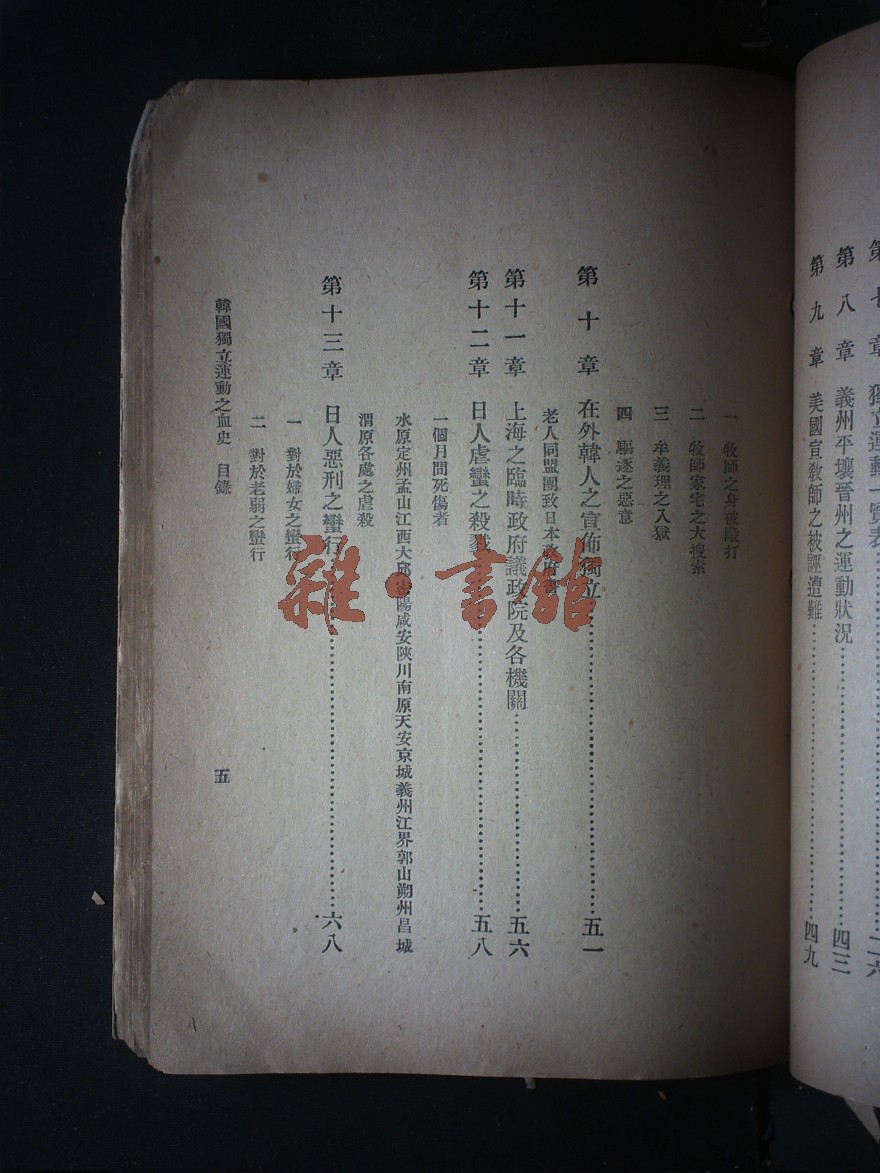 第七章 獨立運動一覽表……二六
第八章 義州平壤晉州之運動狀况……四三
第九章 美國宣敎師之被誣遭難……四九
一 牧師之身被毆打
二 牧師家宅之大搜索
三 牟義理之入獄
四 驅逐之惡意
第十章 在外韓人之宣佈獨立……五一
老人同盟團致日本政府書
第十一章 上海之臨時政府議政院及各機關……五六
第十二章 日人虐蠻之殺戮……五八
一個月間死傷者
水原定州孟山江西大邱密陽咸安陝川南原天安京城義州江界郭山朔州昌城
渭原各處之虐殺
第十三章 日人惡刑之蠻行……六八
一 對於婦女之蠻行
二 對於老弱之蠻行
韓國獨立運動之血史 目錄
五
雜·書館